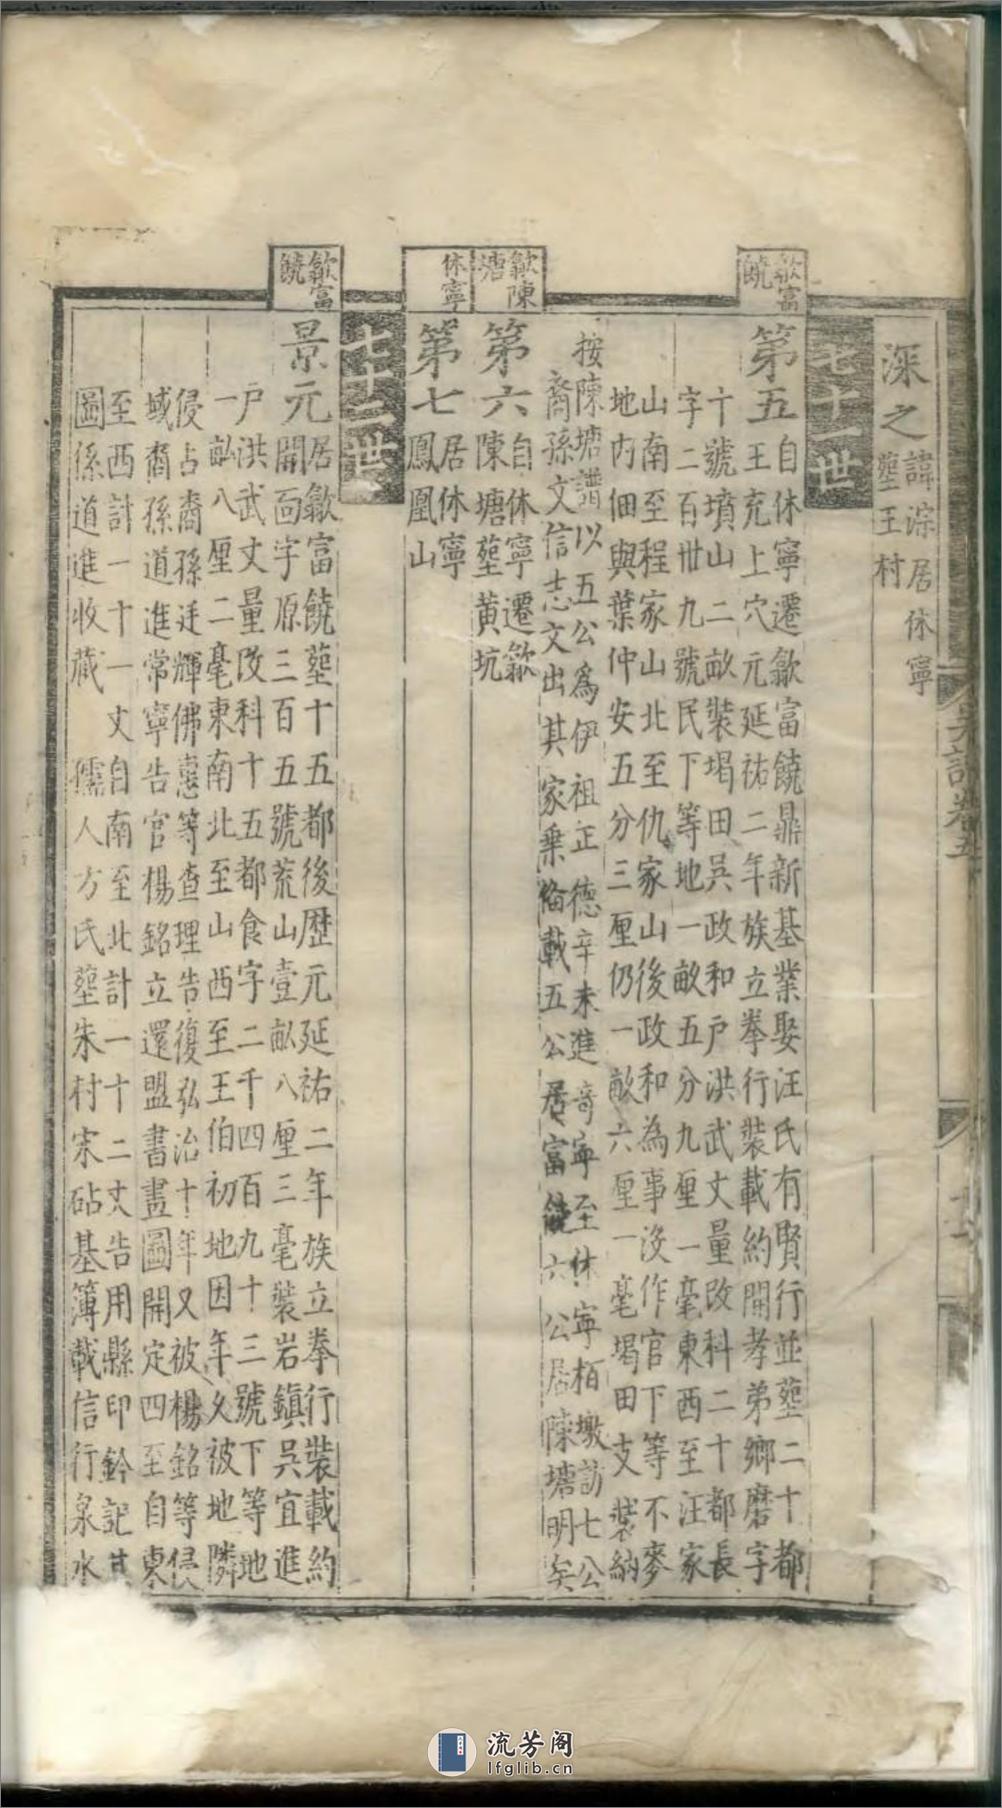 深之
諱淙居休寧
塟王村
七十一世
歙富
饒
第五
自休寧遷歙富饒鼎新基業娶汪氏有賢行並塟二十都
王充上穴元延祐二年族立拳行裝載約開孝弟鄉磨字
十號墳山二畝裝堨田吳政和戶洪武丈量改科二十都長
字二百卅九號民下等地一畝五分九厘一毫東西至汪家
山南至程家山北至仇家山後政和為事沒作官下等不麥
地内佃與葉仲安五分三厘仍一畝六厘一毫堨田支裝納
按陳塘譜以五公為伊祖正德辛未進奇寧至休寧栢墩訪七公
裔孫文信志文出其家乗備載五公居富饒六公居陳塘明矣
歙陳
塘
第六
自休寧遷歙
陳塘塟黄坑
休寧
第七
居休寧
鳳凰山
七十二世
歙富
饒
景元
居歙富饒塟十五都後歷元延祐二年族立拳行裝載約
開靣字原三百五號荒山壹畝八厘三毫裝岩鎮吳宜進
戶洪武丈量改科十五都食字二千四百九十三號下等地
一畝八厘二毫東南北至山西至王伯初地因年久被地隣
侵占裔孫廷輝佛憲等查理告復弘治十年又被楊銘等侵
域裔孫道進常寧告官楊銘立還盟書畫圖開定四至自東
至西計一十一丈自南至北計一十二丈告用縣印鈐記其
圖係道進收藏 孺人方氏塟朱村宋砧基簿載信行泉水
譜卷五
流芳阁
lfglib.cn